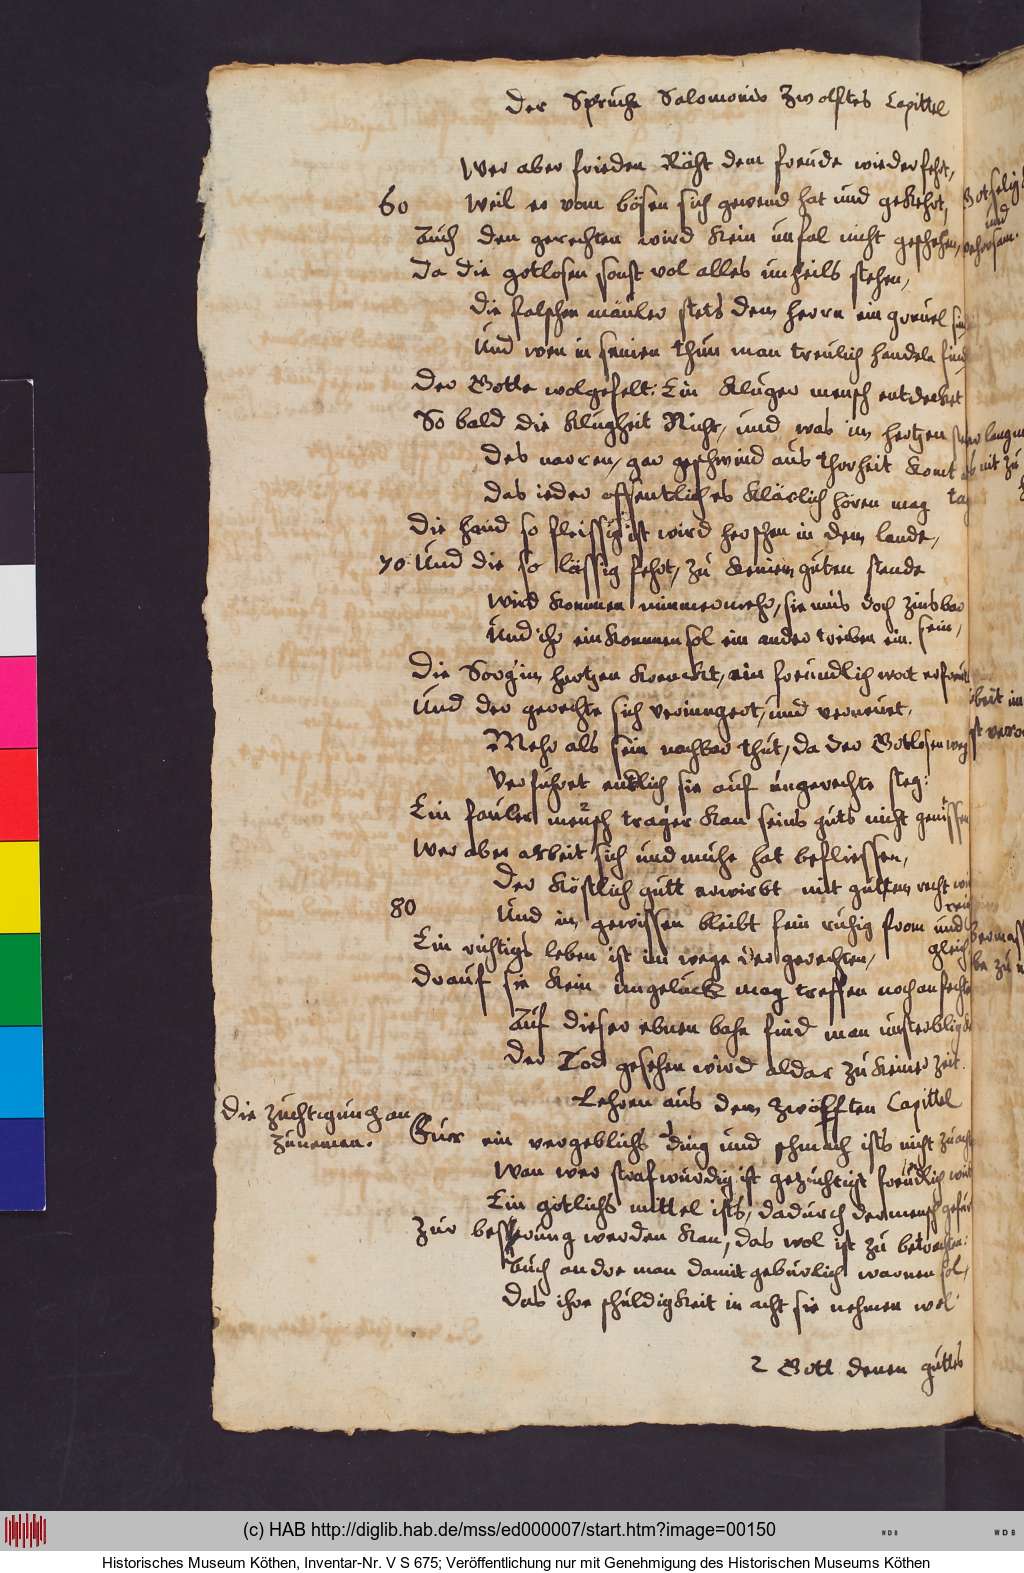 Der Sprüche Salomonis Zwolftes Capittel
Wer aber frieden Räht dem freude wiederfehrt,
60 Weil er vom bösen sich gewend hat und gekehrt,
Auch den gerechten wird kein unfal nicht geschehen,
Da die gotlosen sonst vol alles unheils stehen,
Die falschen mäuler stets dem herrn ein greuel sind
Und wen in seinen thun man treulich handeln find
Der Gotte wolgefelt: Ein kluger mensch entdecket
So bald die klugheit Nicht, und was im hertzen
Des narren, gar geschwind aus thorheit komt
Das ieder offentlich es klärlich hören mag
Die hand so fleissig ist wird herschen in dem lande,
70 Und die so lässig fehrt, zu keinem guten stande
Wird kommen nimmermehr, sie mus doch zinsbar
sein,
Und ihr einkommen sol ein ander treiben ein.
Die Sorg im hertzen krenckt, ein freundlich wort erfreut
Und der gerechte sich veriungert, und verneuet,
Mehr als sein nachbar thut, da der Gotlosen weg
Verfuhret entlich sie auf ungerechte steg:
Ein fauler mensch trager kan seins guts nicht genissen
Wer aber arbeit sich und muhe hat befliessen,
Der köstlich gutt erwirbt mit guttem recht
80 Und im gewissen bleibt fein ruhig from und
gleich
Ein richtigs leben ist im wege der gerechten,
Drauf sie kein ungelück mag treffen noch anfechten
Auf dieser ebnen bahn find man unsterbligkeit
Der Tod gesehen wird aldar zu keiner zeit.
Lehren aus dem zwölften Capittel
Die zuchtigung an
zunemen.
Fur ein vergeblichs ding und schmach ists nicht zu achten
Wan wer strafwurdig ist gezuchtigt freundlich wird
Ein götlichs mittel ists, dadurch der mensch gefurt
Zur besserung werden kan, das wol ist zu betrachten:
Auch andre man damit geburlich warnen sol,
Das ihre schuldigkeit in acht sie nehmen wol
2 Gott denen guttes
(c) HAB http://diglib.hab.de/mss/ed000007/start.htm?image=00150
WDB
WDB
Historisches Museum Köthen, Inventar-Nr. V S 675; Veröffentlichung nur mit Genehmigung des Historischen Museums Köthen